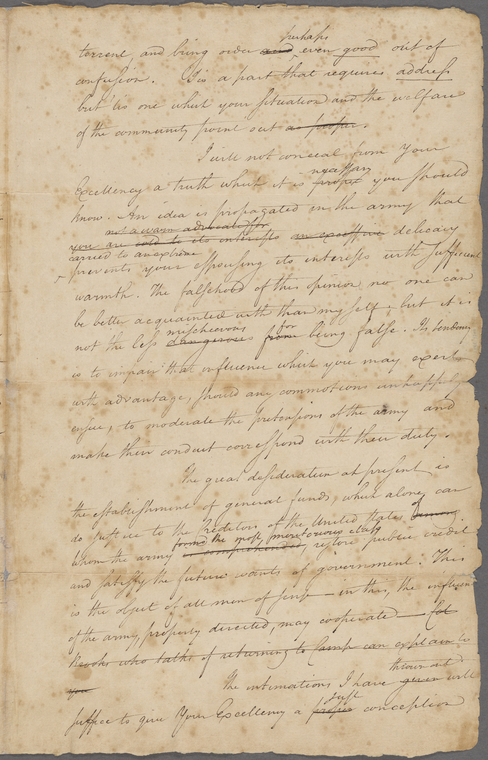 perhaps
torrent, and bring order and even good out of
confusion. Tis a part that requires address
but 'tis one which your situation and the welfare
of the community point out as proper.
I will not conceal from Your
necessary
Excellency a truth which it is proper you should
know. An idea is propagated in the army that
not a warm advocate for
you are cold to its interests an excessive delicacy
carried to an extreme
prevents your espousing its interests with sufficient
warmth. The falsehood of this opinion no one can
be better acquainted with than myself; but it is
mischievous for
not the less dangerous from being false. Its tendency
is to impair that influence which you may exert
with advantage, should any commotions unhappily
ensue, to moderate the pretensions of the army and
make their conduct correspond with their duty.
The great desideratum at present is
the establishment of general funds, which alone can
do justice to the Creditors of the United States (among
forms the most meritorious class)
whom the army is comprehended, restore public credit
and satisfy the future wants of government. This
is the object of all men of sense—in this, the influence
of the army, properly directed, may cooperate. Col
Brooks who talks of returning to Camp can explain to
you
thrown out
The intimations I have given will
just
suffice to give Your Excellency a proper conception